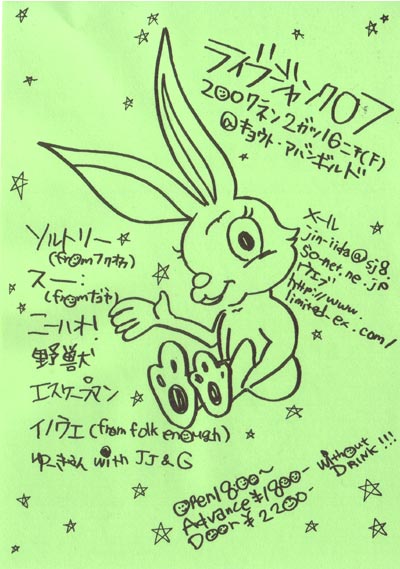 ライブジャンク07
2007ネン2ガツ16ニチ(F)
@キョウト・アバンギルド
メール
jin-iida@sj8.
so-net.ne.jp
ウェブ
http://www.
limited-ex.com/
ソルトリー
(from フクオカ)
スー:
(from
ニーハオ!
野獣
エスケープマン
イノウエ (from folk enough)
ゆーきゃん with JJ & G
OPEN 18:00〜
Advance ¥1800-
Door ¥2200-
without
DRINK!!!